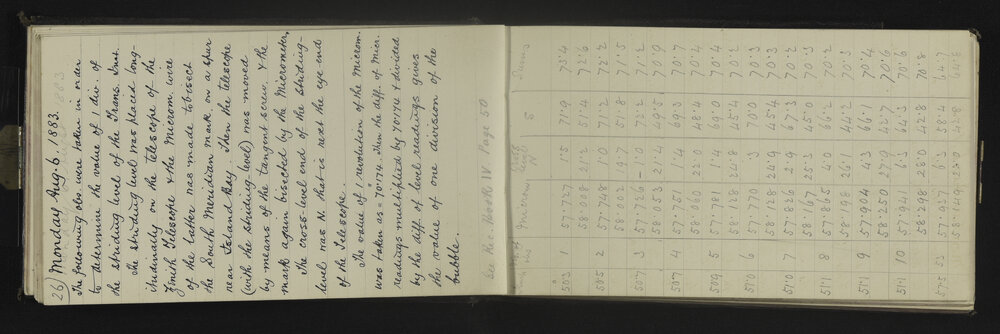 26) Monday Aug. 6. 1883.
The following obs. were taken in order
to determine the value of 1 div of
the striding level of the Trans. Inst.
The striding level was placed long-
itudinally on the telescope of the
Zenith Telescope & the Microm. wire
of the latter was made to bisect
the South Meridian mark on a spur
near Island Bay. Then the telescope
(with the striding-level) was moved
by means of the tangent screw, & the
mark again bisected by the Micrometer.
The cross-level end of the striding-
level was N. that is next the eye end
of the Telescope.
The value of 1 revolution of the Microm.
was taken as = 70"174. Then the diff. of Micr.
readings multiplied by 70.174 & divided
by the diff. of level readings gives
the value of one division of the
bubble.
See this Book IV Page 50
Microm Level
N S Sums
50.3 1 57.727 1.5 71.9 73.4
58.008 21.2 51.4 72.6
50.5 2 57.748 2.0 70.2 72.2
58.002 19.7 51.8 71.5
50.7 3 57.726 -1.0 72.2 71.2
58.053 21.4 49.5 70.9
50.7 4 57.754 1.4 69.3 70.7
58.060 22.0 48.4 70.4
50.9 5 57.781 1.4 69.0 70.4
58.128 24.8 45.4 70.2
51.0 6 57.773 .3 70.0 70.3
58.128 24.9 45.4 70.3
51.0 7 57.826 2.9 67.3 70.2
58.167 25.3 45.0 70.3
51.1 8 57.865 4.0 66.2 70.2
58.198 26.1 44.2 70.3
51.1 9 57.904 4.3 66.1 70.4
58.250 27.9 42.7 70.6
51.1 10 57.941 6.3 64.3 70.6
58.298 28.0 42.8 70.8
57.037 6.3 58.4 64.7
58.149 23.0 64.8